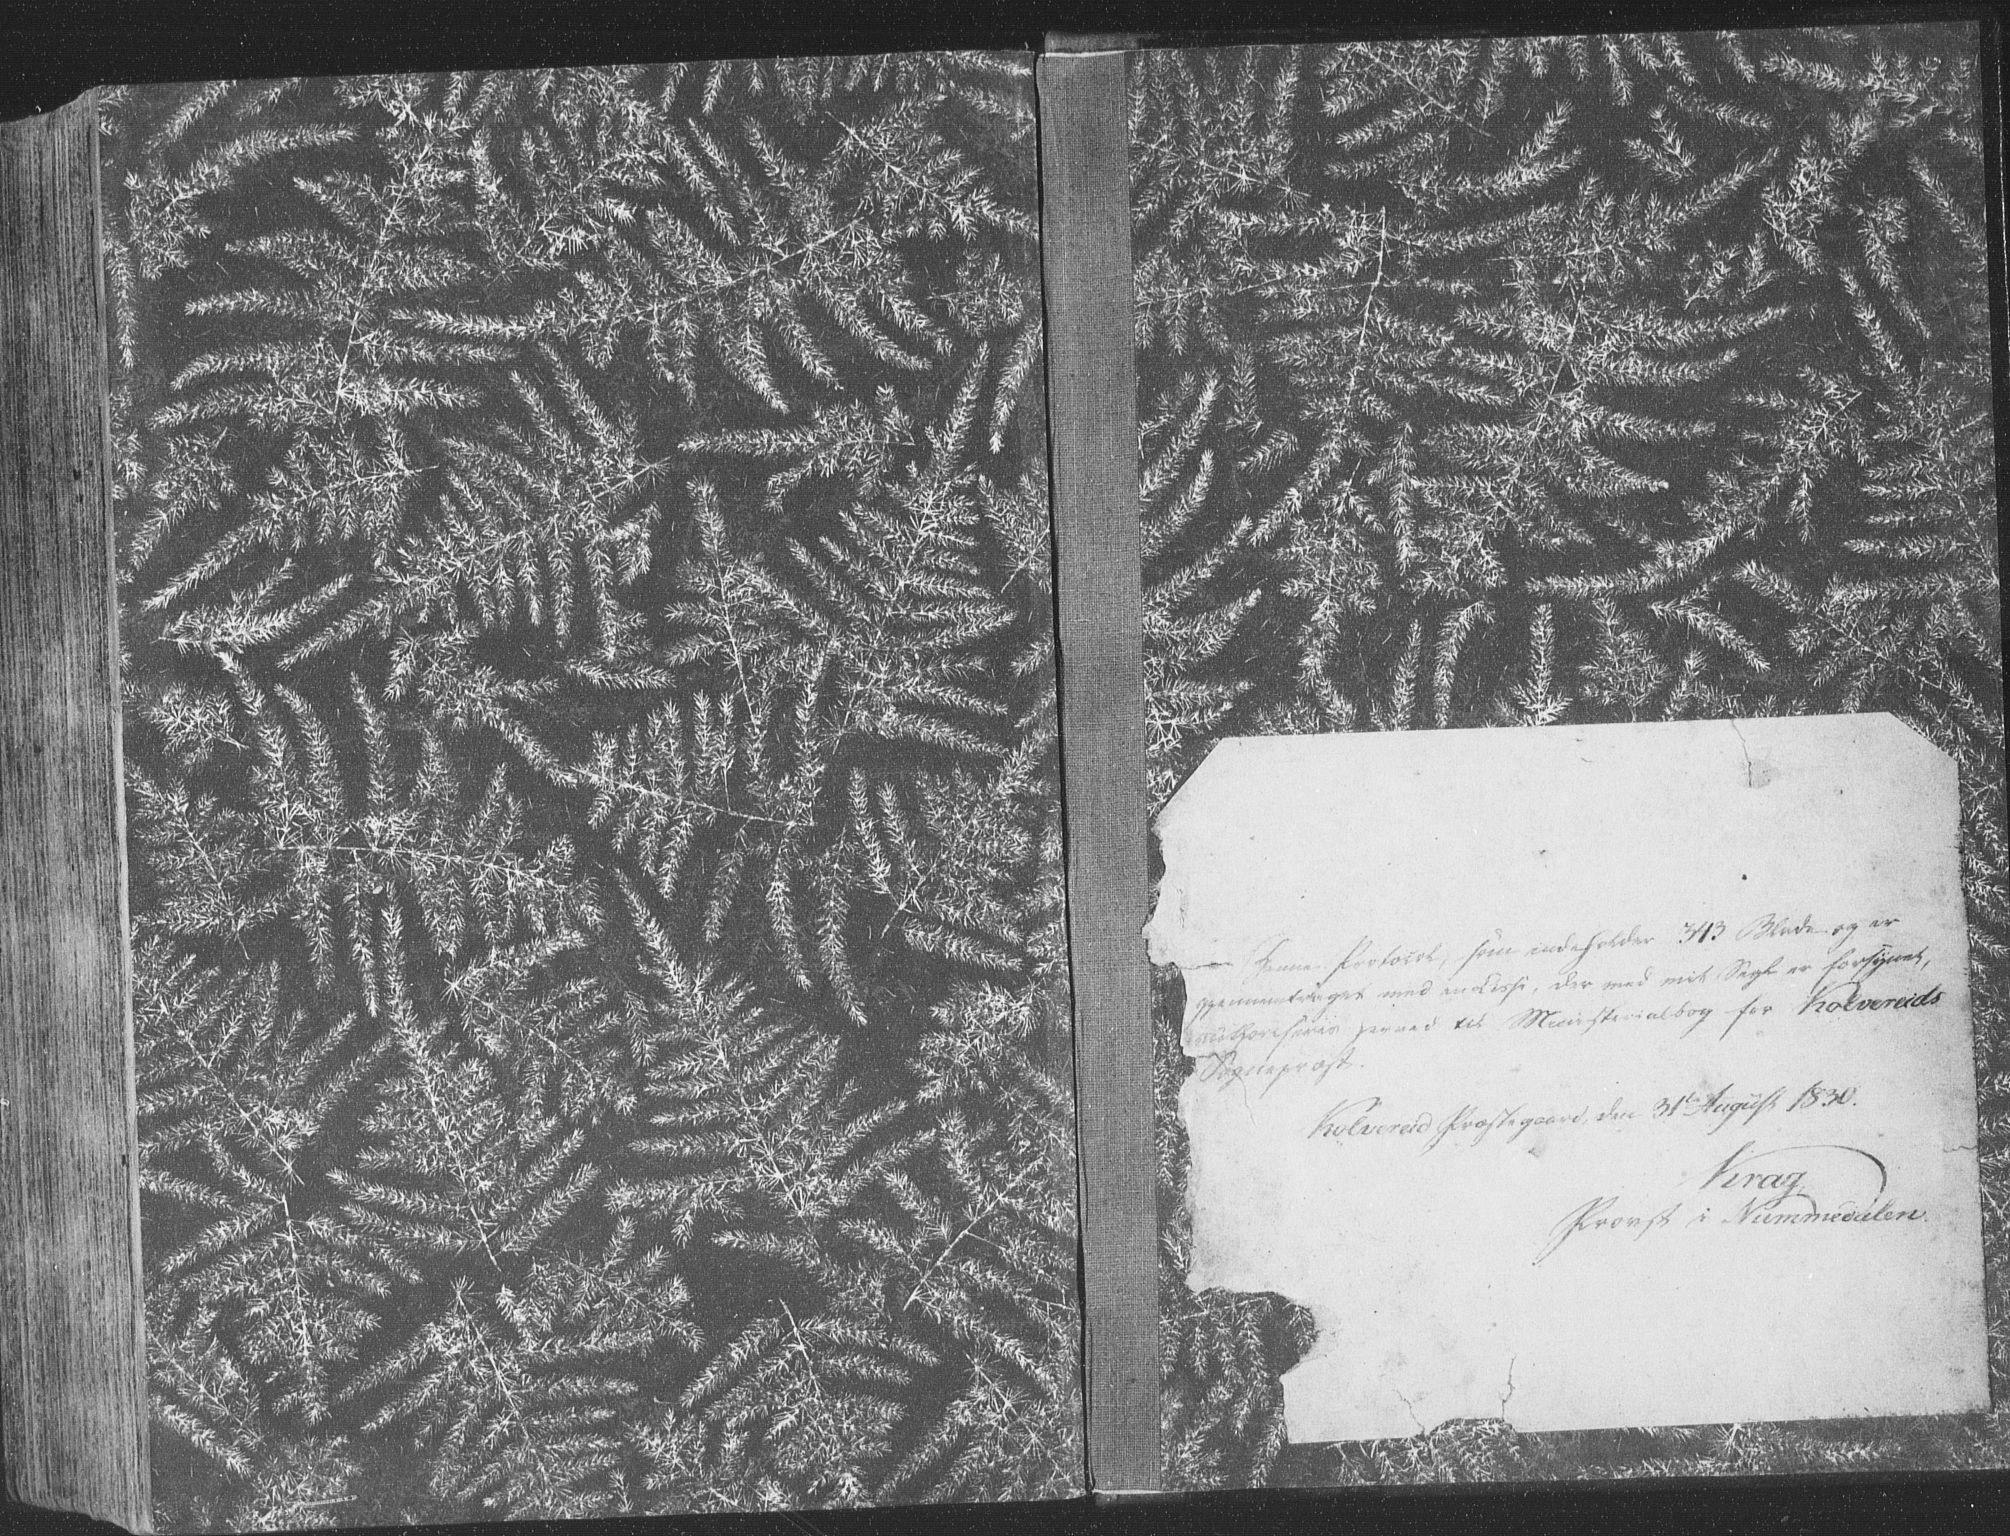 Denne Protocol, som indeholder 343 Blade og er
gjennemdraget med en Lidse, der med mit Segl er forsÿnet,
authoriseres herved til Ministerialbog for Kolvereids
Sognepræst.
Kolvereid Præstegaard, den 31te August 1830.
Krag
Provst i Nummedalen.